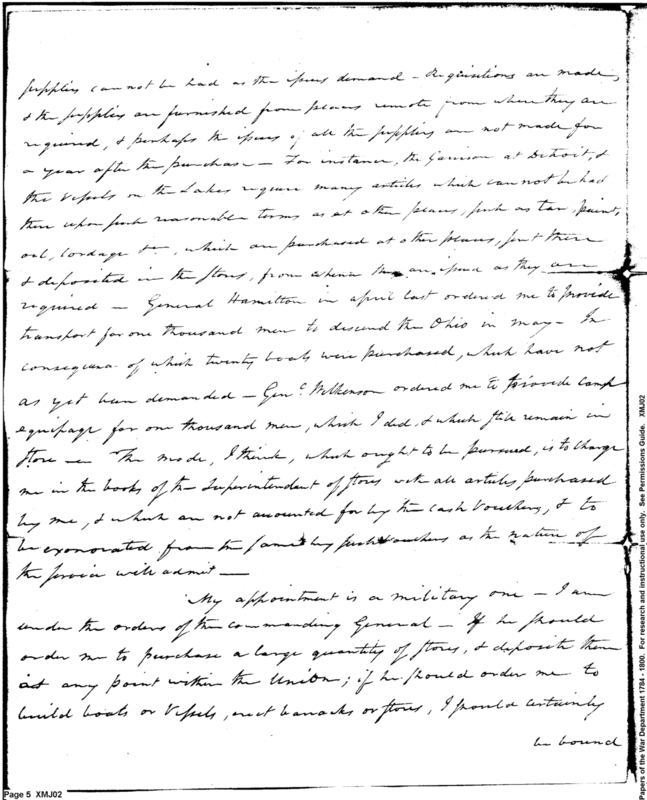 supplies cannot be had as the issues demand – Requisitions are made,
& the supplies are furnished from places remote from where they are
required, & perhaps the issues of all the supplies are not made for
a year after the purchase – For instance, the Garrison at Detroit, &
the Vessels on the Lakes require many articles which cannot be had
there upon such reasonable terms as at other places, such as tar, paint,
oil, Cordage &c, which are purchased at other places, sent there
& deposited in the stores, from whence they are issued as they are
required – General Hamilton in april last ordered me to provide
transport for one thousand men to descend the Ohio in may – In
consequence of which twenty boats were purchased, which have not
as yet been demanded – Genl. Wilkinson ordered me to provide Camp
equipage for one thousand men, which I did, & which still remain in
store – The mode, I think, which ought to be pursued, is to charge
me in the books of the Superintendant of stores with all articles purchased
by me, & which are not accounted for by the cash Vouchers, & to
be exonorated from the same by such Vouchers as the nature of
the service will admit –
My appointment is a military one – I am
under the orders of the commanding General – If he should
order me to purchase a large quantity of stores, & deposite them
at any point within the Union; if he should order me to
build boats or Vessels, erect barracks or stores, I should certainly
be bound
Page 5 XMJ02
Papers of the War Department 1784 - 1800. For research and instructional use only. See Permissions Guide. XMJ02